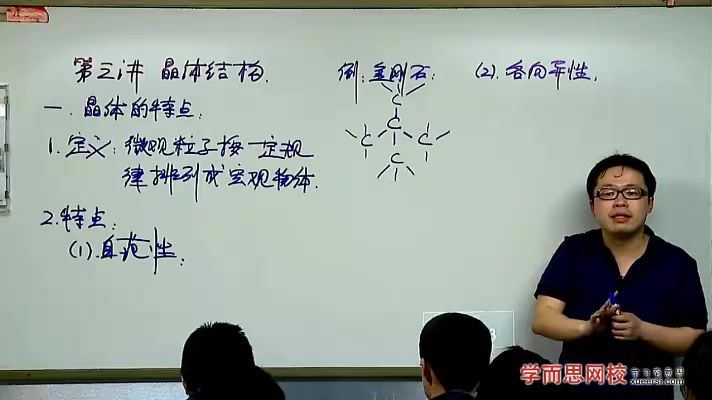 第三讲 晶体结构.
一.晶体的特点:
1.定义:微观粒子按一定规
律排列成宏观物体.
2.特点:
(1).自范性:
例:金刚石:
C
C C C
C
(2).各向异性.
学而思网校
xueersi.com